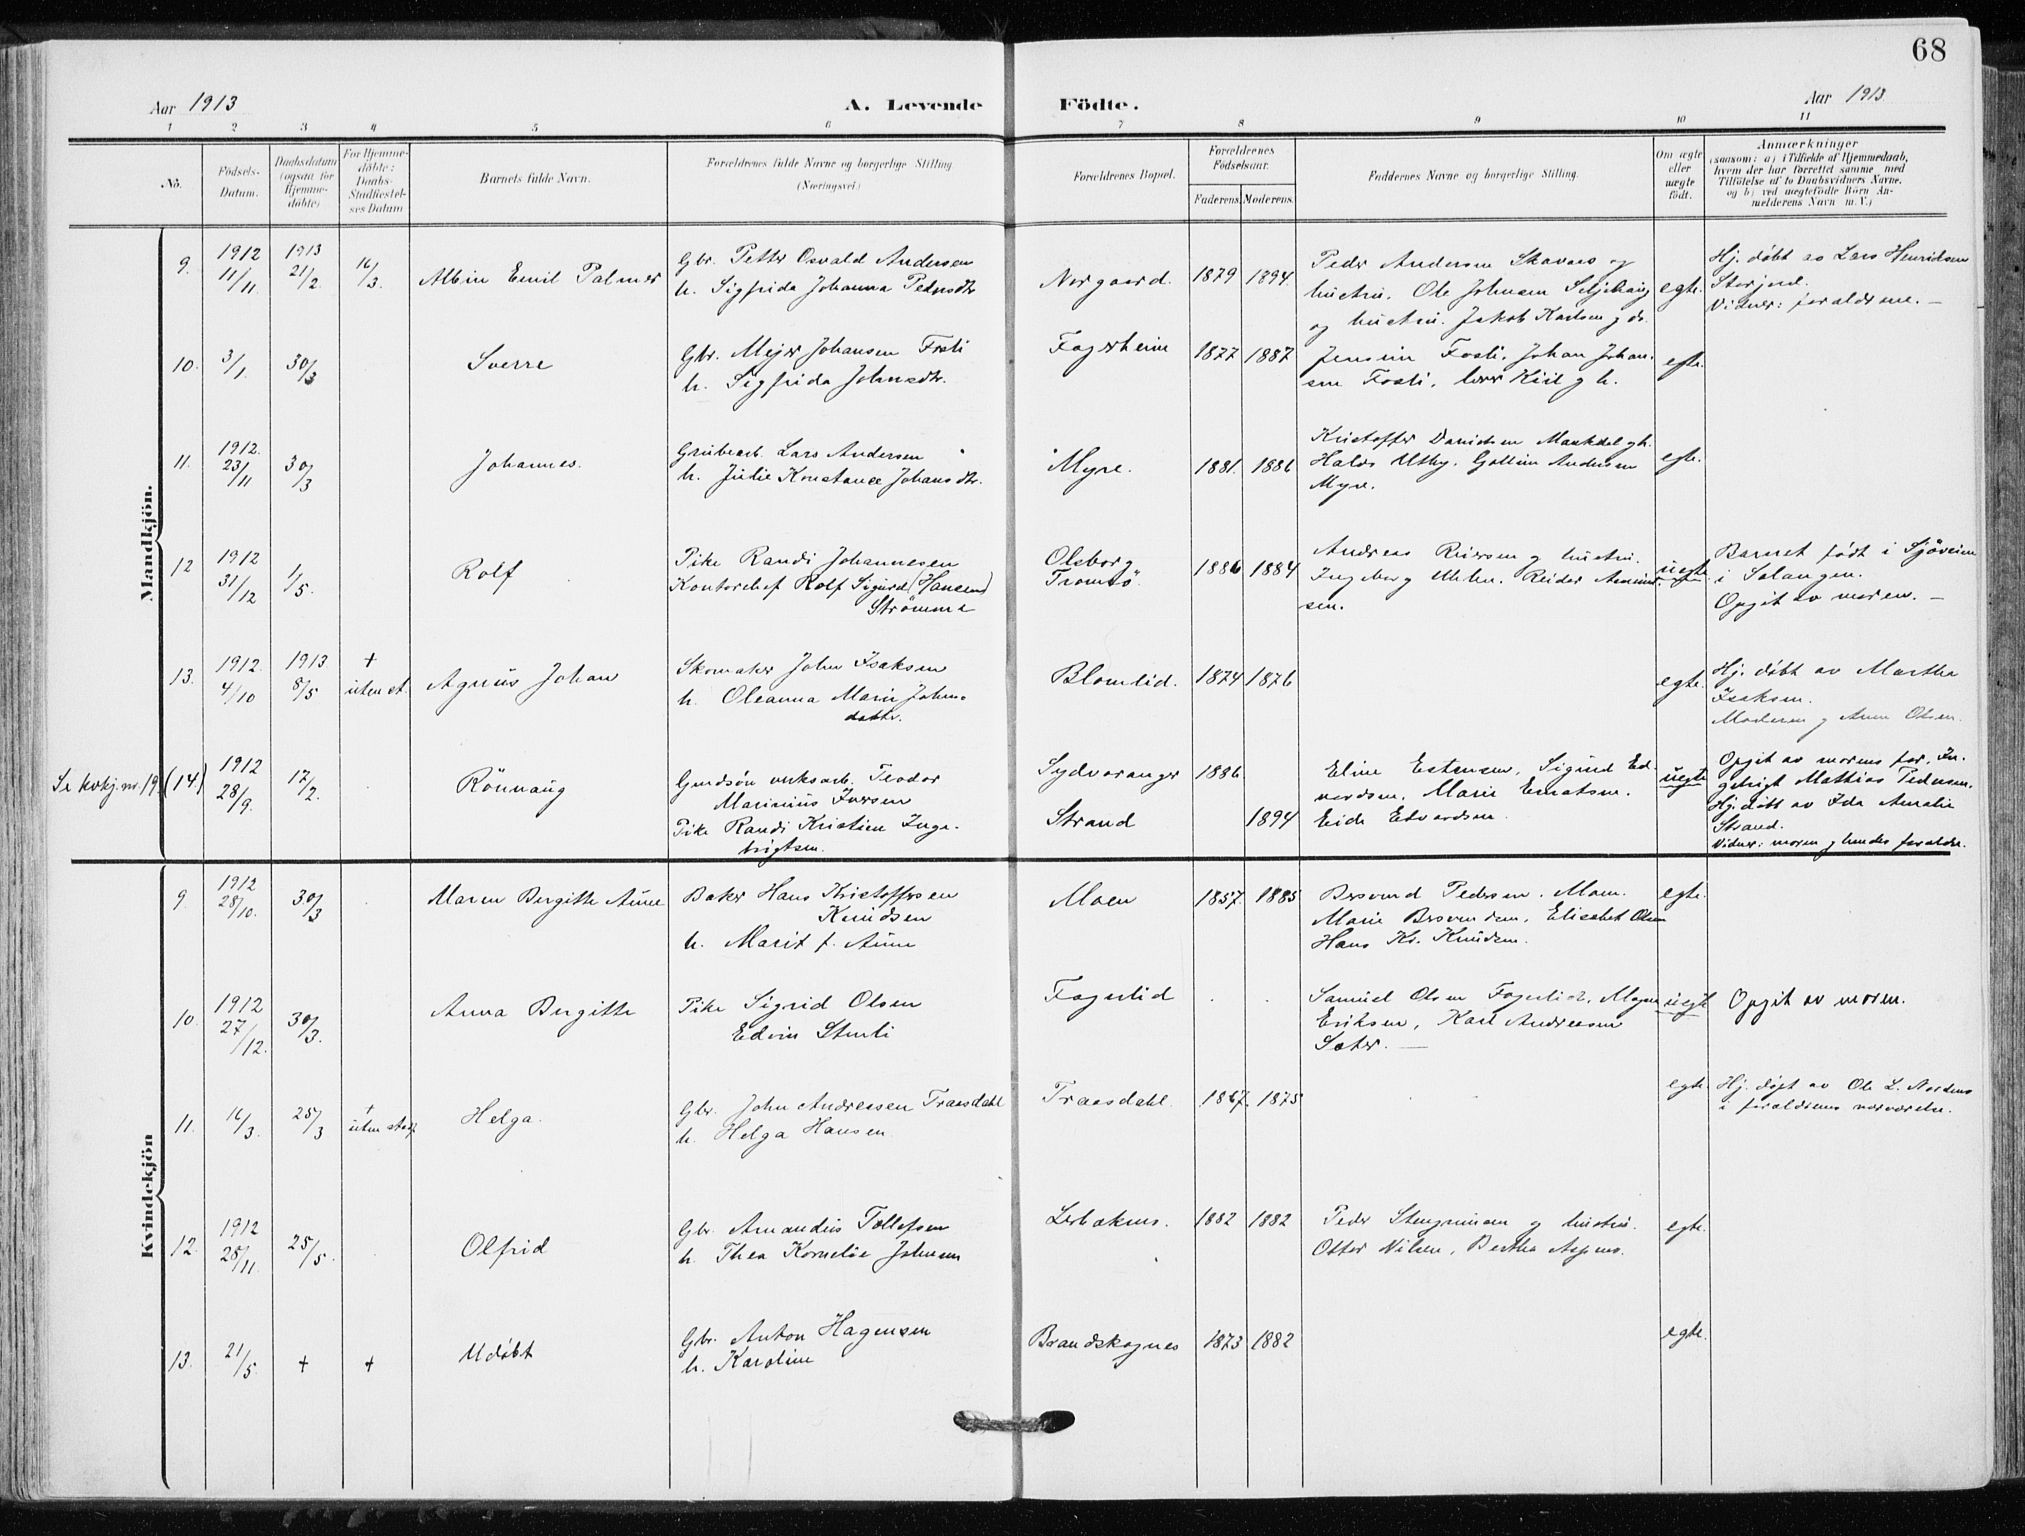 68
Aar 1913
A. Levende
Födte.
Aar 1913
1 2 3 4 5 6 7 8 9 10 11
No.
Födsels-
Datum.
Daabsdatum
(ogsaa for
Hjemme-
döbte)
For Hjemme-
döbte:
Daabs-
Stadfæstel-
ses Datum
Barnets fulde Navn.
Forældrenes fulde Navne og borgerlige Stilling
(Næringsvei.)
Forældrenes Bopæl.
Forældrenes
Födselsaar.
Faderens. Moderens.
Faddernes Navne og borgerlige Stilling.
Om ægte
eller
uægte
födt.
Anmærkninger
(saasom: a) i Tilfælde af Hjemmedaab,
hvem der har forrettet samme med
Tilföielse af to Daabsvidners Navne.
og b) ved uægtefödte Börn An-
melderens Navn m. V.)
Mandkjön.
9.
1912
11/11.
1913
21/2.
16/3.
Albin Emil Palmer
Gbr. Petter Osvald Andersen
h. Sigfrida Johanna Pedersdtr
Norgaard.
1879
1894.
Peder Andersen Skavaas og
hustru. Ole Johnsen Seljehaug
og hustru. Jakob Karlsen g ds.
egte.
Hj. døbt av Lars Henriksen
Storjord.
Vidner: forældrene. —
10.
3/1.
30/3
Sverre
Gbr. Mejer Johansen Fosli
h. Sigfrida Johnsdtr.
Fagerheim
1877
1887
Jensine Fosli, Johan Johan-
sen Fosli, Kiil g h.
egte.
11.
1912.
23/11
30/3
Johannes.
Grubearb. Lars Andersen
h. Julie Konstance Johansdtr.
Myre.
1881.
1886
Kristoffer Danielsen g h.
Utby. Andersen
Myre.
egte.
12
1912
31/12
1/5.
Rolf
Pike Randi Johannesen
Kontorchef Rolf Sigurd (Hansen)
Strömme
Olsborg
Tromsö
1886
1884
Andreas Riersen g hustru.
Ingeborg Uhlen. Reidar
sen.
uegte
Barnet født i Sjöveien
i Salangen.
Opgit av moren. —
13.
1912.
4/10
1913
8/5
+
uten st.
Agnus Johan
Skomaker John Isaksen
h. Oleanna Marie Johns-
datter.
Blomlid.
1874
1876
egte.
Hj. døbt av Martha
Isaksen.
Moderen g Anne Olsen.
Se kvkj. nr. 19.
(14.)
1912
28/9.
17/2.
Rönnaug
Gaardsön verksarb. Teodor
Marinius Iversen
Pike Randi Kristien Inge-
brigtsen.
Sydvaranger
Strand
1886.
1894
Eline Estensen, Sigurd Ed-
vardsen, Marie Ernstsen.
Eide Edvardsen.
uegte
Opgit av morens far, In-
gebrigt Mathias Pedersen.
Hj. døbt av Ida Amalie
Strand.
Vidner: moren g hendes forældre.
Kvindekjön
9.
1912
28/10.
30/3
Maren Birgitte Aune
Baker Hans Kristoffersen
Knudsen
h. Marit f. Aune
Moen
1857.
1885
Besvend Pedersen. Moen.
Marie Besvendsen, Elisabet Olsen
Hans Kr. Knudsen.
egte.
10.
1912
27/12.
30/3.
Anna Birgitte
Pike Sigrid Olsen
Edvin Stenli
Fagerlid
Samuel Olsen Fagerlid, Magna
Eriksen, Karl Andreasen
Sæter. —
uegt
Opgit av moren.
11.
16/3.
25/3
+
uten stadf.
Helga.
Gbr. John Andreasen Traasdahl
h. Helga Hansen.
Traasdahl.
1867.
1875
egte.
Hj. døpt av Ole L. Nordmo
i forældrenes nærværelse.
12.
1912
25/11.
25/5.
Olfrid
Gbr. Amandus Tollefsen
h. Thea Kornelie Johnsen
Lerbakmo.
1882
1882
Peder Steingrimsen og hustru.
Otter Nilsen, Bertha Aspmo.
egte.
13.
21/5.
+
+
Udöbt
Gbr. Anton Hagensen
h. Karoline
Brandskognes
1873
1882
egte.